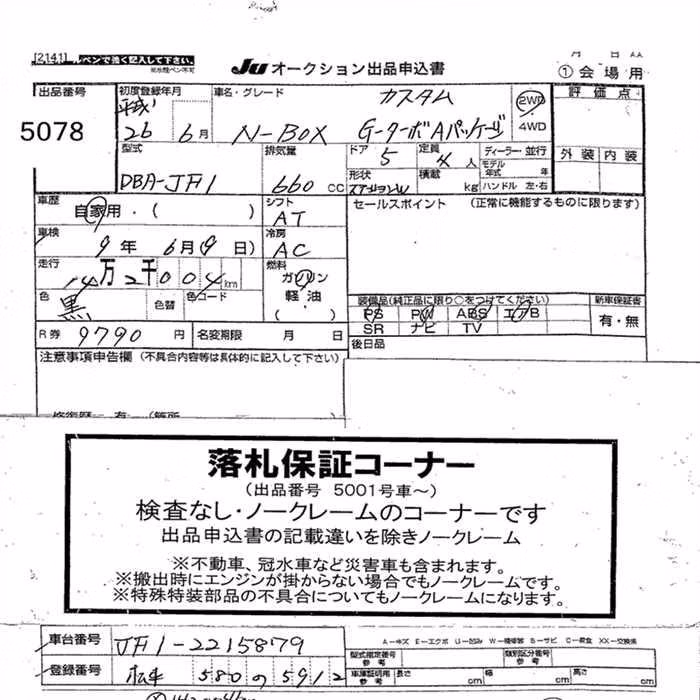 [2141] ルペンで強く記入して下さい。
Ju オークション出品申込書
①会場用
出品番号 初度登録年月 車名・グレード カスタム 2WD 評価点
5078 平成 26 6月 N-BOX G-ターボAパッケージ 4WD
型式 排気量 ドア 5 定員 4人 ディーラー・並行 外装 内装
モデル年式 年
DBA-JF1 660 cc 形状 ステーションW 積載 kg ハンドル 左・右
車歴 自家用・( ) シフト AT セールスポイント (正常に機能するものに限ります)
車検 9年 6月(9日) 冷房 AC
走行 14万2千004km 燃料 ガソリン
色 黒 色替 色コード 軽油 ( )
装備品(純正品に限り○をつけてください) 新車保証書
PS PW ABS エアB 有・無
SR ナビ TV
R券 9790円 名変期限 月 日 後日品
注意事項申告欄 (不具合内容等は具体的に記入して下さい)
修復歴 有 (箇所
落札保証コーナー
(出品番号 5001号車~)
検査なし・ノークレームのコーナーです
出品申込書の記載違いを除きノークレーム
※不動車、冠水車など災害車も含まれます。
※搬出時にエンジンが掛からない場合でもノークレームです。
※特殊特装部品の不具合についてもノークレームになります。
車台番号 JF1-2215879
A-キズ E-エクボ U-凹み W-補修跡 S-サビ C-腐食 XX-交換済
型式指定番号 参考 類別区分番号 参考
登録番号 松本 580 の 5912 車庫証明用 参考 長さ cm 幅 cm 高さ cm